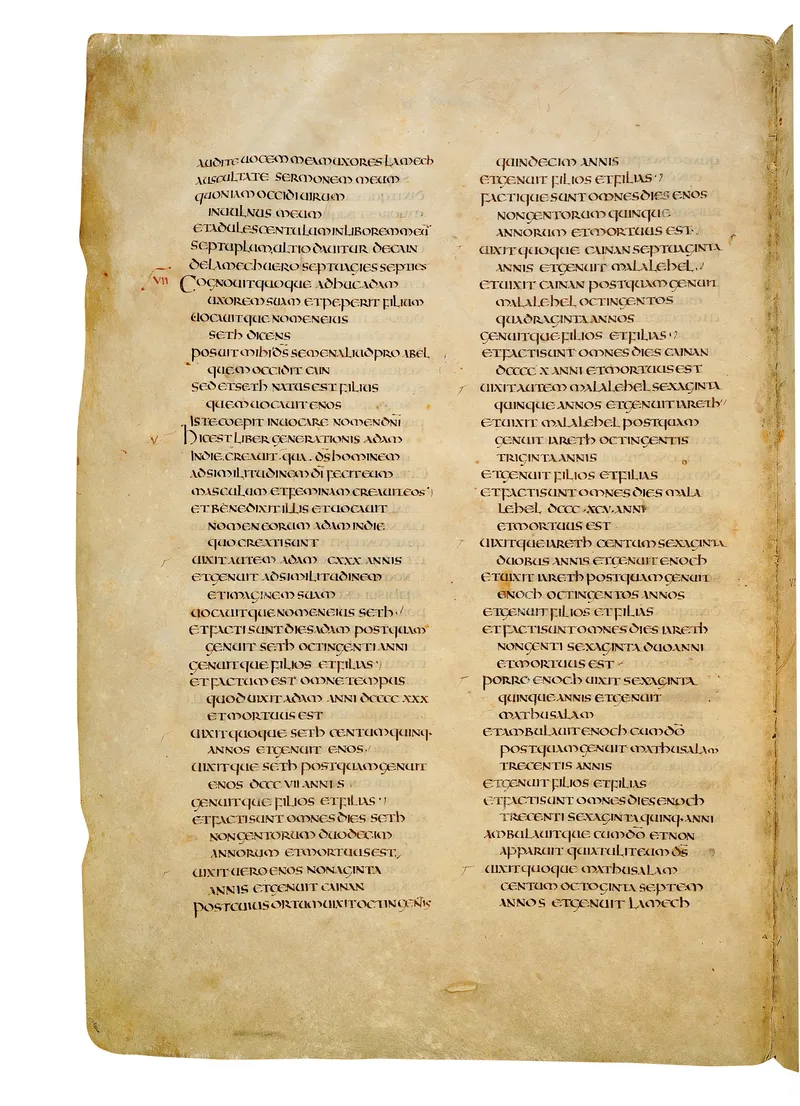 AUDITE UOCEM MEAM UXORES LAMECH
AUSCULTATE SERMONEM MEUM
QUONIAM OCCIDI UIRUM
IN UULNUS MEUM
ET ADULESCENTULUM IN LIBOREM MEŪ
SEPTUPLUM ULTIO DAUITUR DE CAIN
DE LAMECH UERO SEPTUAGIES SEPTIES
VII COGNOUIT QUOQUE ADHUC ADAM
UXOREM SUAM ET PEPERIT FILIUM
UOCAUITQUE NOMEN EIUS
SETH DICENS
POSUIT MIHI D̄S SEMEN ALIUD PRO ABEL
QUEM OCCIDIT CAIN
SED ET SETH NATUS EST FILIUS
QUEM UOCAUIT ENOS
ISTE COEPIT INUOCARE NOMEN DN̄I
V HIC EST LIBER GENERATIONIS ADAM
IN DIE CREAUIT QUA D̄S HOMINEM
AD SIMILITUDINEM D̄I FECIT EUM
MASCULUM ET FEMINAM CREAUIT EOS
ET BENEDIXIT ILLIS ET UOCAUIT
NOMEN EORUM ADAM IN DIE
QUO CREATI SUNT
UIXIT AUTEM ADAM CXXX ANNIS
ET GENUIT AD SIMILITUDINEM
ET IMAGINEM SUAM
UOCAUITQUE NOMEN EIUS SETH
ET FACTI SUNT DIES ADAM POSTQUAM
GENUIT SETH OCTINGENTI ANNI
GENUITQUE FILIOS ET FILIAS
ET FACTUM EST OMNE TEMPUS
QUOD UIXIT ADAM ANNI DCCCC XXX
ET MORTUUS EST
UIXIT QUOQUE SETH CENTUM QUINQ·
ANNOS ET GENUIT ENOS
UIXITQUE SETH POSTQUAM GENUIT
ENOS DCCC VII ANNIS
GENUITQUE FILIOS ET FILIAS
ET FACTI SUNT OMNES DIES SETH
NONGENTORUM DUODECIM
ANNORUM ET MORTUUS EST
UIXIT UERO ENOS NONAGINTA
ANNIS ET GENUIT CAINAN
POST CUIUS ORTUM UIXIT OCTINGENIS
QUINDECIM ANNIS
ET GENUIT FILIOS ET FILIAS
FACTIQUE SUNT OMNES DIES ENOS
NONGENTORUM QUINQUE
ANNORUM ET MORTUUS EST
UIXIT QUOQUE CAINAN SEPTUAGINTA
ANNIS ET GENUIT MALALEHEL
ET UIXIT CAINAN POSTQUAM GENUIT
MALALEHEL OCTINGENTOS
QUADRAGINTA ANNOS
GENUITQUE FILIOS ET FILIAS
ET FACTI SUNT OMNES DIES CAINAN
DCCCC X ANNI ET MORTUUS EST
UIXIT AUTEM MALALEHEL SEXAGINTA
QUINQUE ANNOS ET GENUIT IARETH
ET UIXIT MALALEHEL POSTQUAM
GENUIT IARETH OCTINGENTIS
TRIGINTA ANNIS
ET GENUIT FILIOS ET FILIAS
ET FACTI SUNT OMNES DIES MALA
LEHEL DCCC·XCV·ANNI
ET MORTUUS EST
UIXITQUE IARETH CENTUM SEXAGINTA
DUOBUS ANNIS ET GENUIT ENOCH
ET UIXIT IARETH POSTQUAM GENUIT
ENOCH OCTINGENTOS ANNOS
ET GENUIT FILIOS ET FILIAS
ET FACTI SUNT OMNES DIES IARETH
NONGENTI SEXAGINTA DUO ANNI
ET MORTUUS EST
PORRO ENOCH UIXIT SEXAGINTA
QUINQUE ANNIS ET GENUIT
MATHUSALAM
ET AMBULAUIT ENOCH CUM D̄O
POSTQUAM GENUIT MATHUSALAM
TRECENTIS ANNIS
ET GENUIT FILIOS ET FILIAS
ET FACTI SUNT OMNES DIES ENOCH
TRECENTI SEXAGINTA QUINQ· ANNI
AMBULAUITQUE CUM D̄O ET NON
APPARUIT QUIA TULIT EUM D̄S
UIXIT QUOQUE MATHUSALAM
CENTUM OCTOGINTA SEPTEM
ANNOS ET GENUIT LAMECH